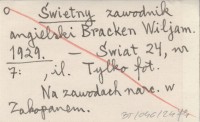 Świetny zawodnik
angielski Bracken Wiljam.
1929. — Świat 24, nr
7: , il. Tylko fot.
Na zawodach narc. w
Zakopanem.